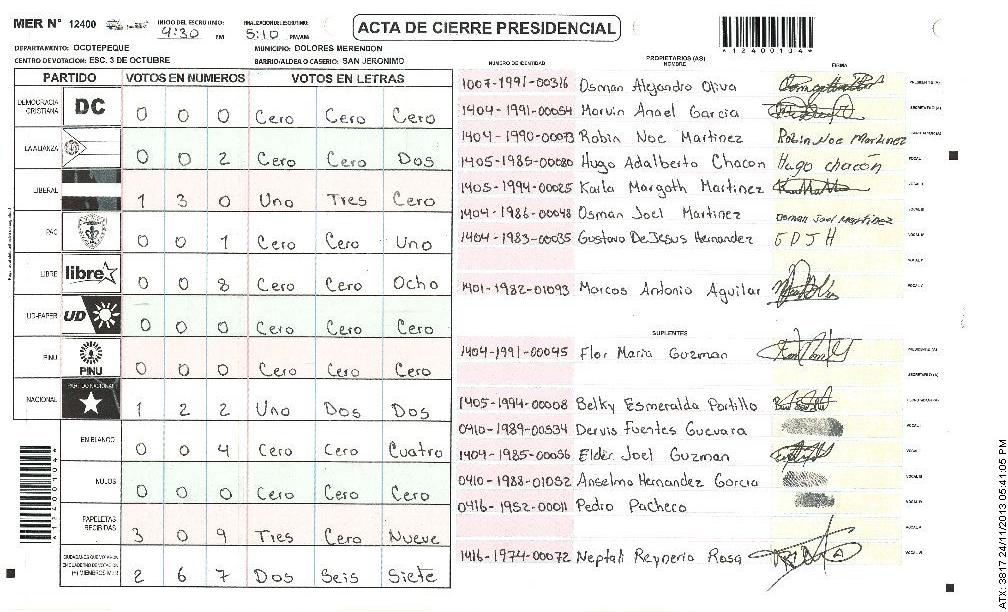 MER N° 12400 INICIO DEL ESCRUTINIO: 4:30 PM FINALIZACION ESCRUTINIO: 5:10 PM/AM ACTA DE CIERRE PRESIDENCIAL
*12400104*
DEPARTAMENTO: OCOTEPEQUE MUNICIPIO: DOLORES MERENDON
CENTRO DE VOTACION: ESC. 3 DE OCTUBRE BARRIO/ALDEA O CASERIO: SAN JERONIMO
PARTIDO VOTOS EN NUMEROS VOTOS EN LETRAS
DEMOCRACIA CRISTIANA DC 0 0 0 Cero Cero Cero
LA ALIANZA 0 0 2 Cero Cero Dos
LIBERAL 1 3 0 Uno Tres Cero
PAC 0 0 1 Cero Cero Uno
LIBRE libre 0 0 8 Cero Cero Ocho
UD-FAPER UD 0 0 0 Cero Cero Cero
PINU PINU 0 0 0 Cero Cero Cero
NACIONAL PARTIDO NACIONAL 1 2 2 Uno Dos Dos
EN BLANCO 0 0 4 Cero Cero Cuatro
NULOS 0 0 0 Cero Cero Cero
PAPELETAS RECIBIDAS 3 0 9 Tres Cero Nueve
CIUDADANOS QUE VOTARON EN CUADERNO DE VOTACION (+) MIEMBROS MER 2 6 7 Dos Seis Siete
*12400104*
PROPIETARIOS (AS)
NUMERO DE IDENTIDAD NOMBRE FIRMA
1007-1991-00316 Osman Alejandro Oliva PRESIDENTE (A)
1404-1991-00054 Marvin Anael Garcia SECRETARIO (A)
1404-1990-00073 Robin Noe Martinez Robin Noe Martinez
1405-1985-00080 Hugo Adalberto Chacon Hugo chacón VOCAL I
1405-1994-00025 Karla Margoth Martinez VOCAL II
1404-1986-00048 Osman Joel Martinez Osman Joel Martinez VOCAL III
1404-1983-00035 Gustavo De Jesus Hernandez GDJH VOCAL IV
VOCAL V
1401-1982-01093 Marcos Antonio Aguilar
SUPLENTES
1404-1991-00045 Flor Maria Guzman PRESIDENTE (A)
SECRETARIO (A)
1405-1994-00008 Belky Esmeralda Portillo
0410-1989-00534 Dervis Fuentes Guevara VOCAL I
1404-1985-00056 Elder Joel Guzman VOCAL II
0410-1988-01052 Anselmo Hernandez Garcia VOCAL III
0416-1952-00011 Pedro Pacheco VOCAL IV
VOCAL V
1416-1974-00072 Neptali Reynerio Rosa VOCAL VI
ATX: 3817 24/11/2013 05:41:05 PM